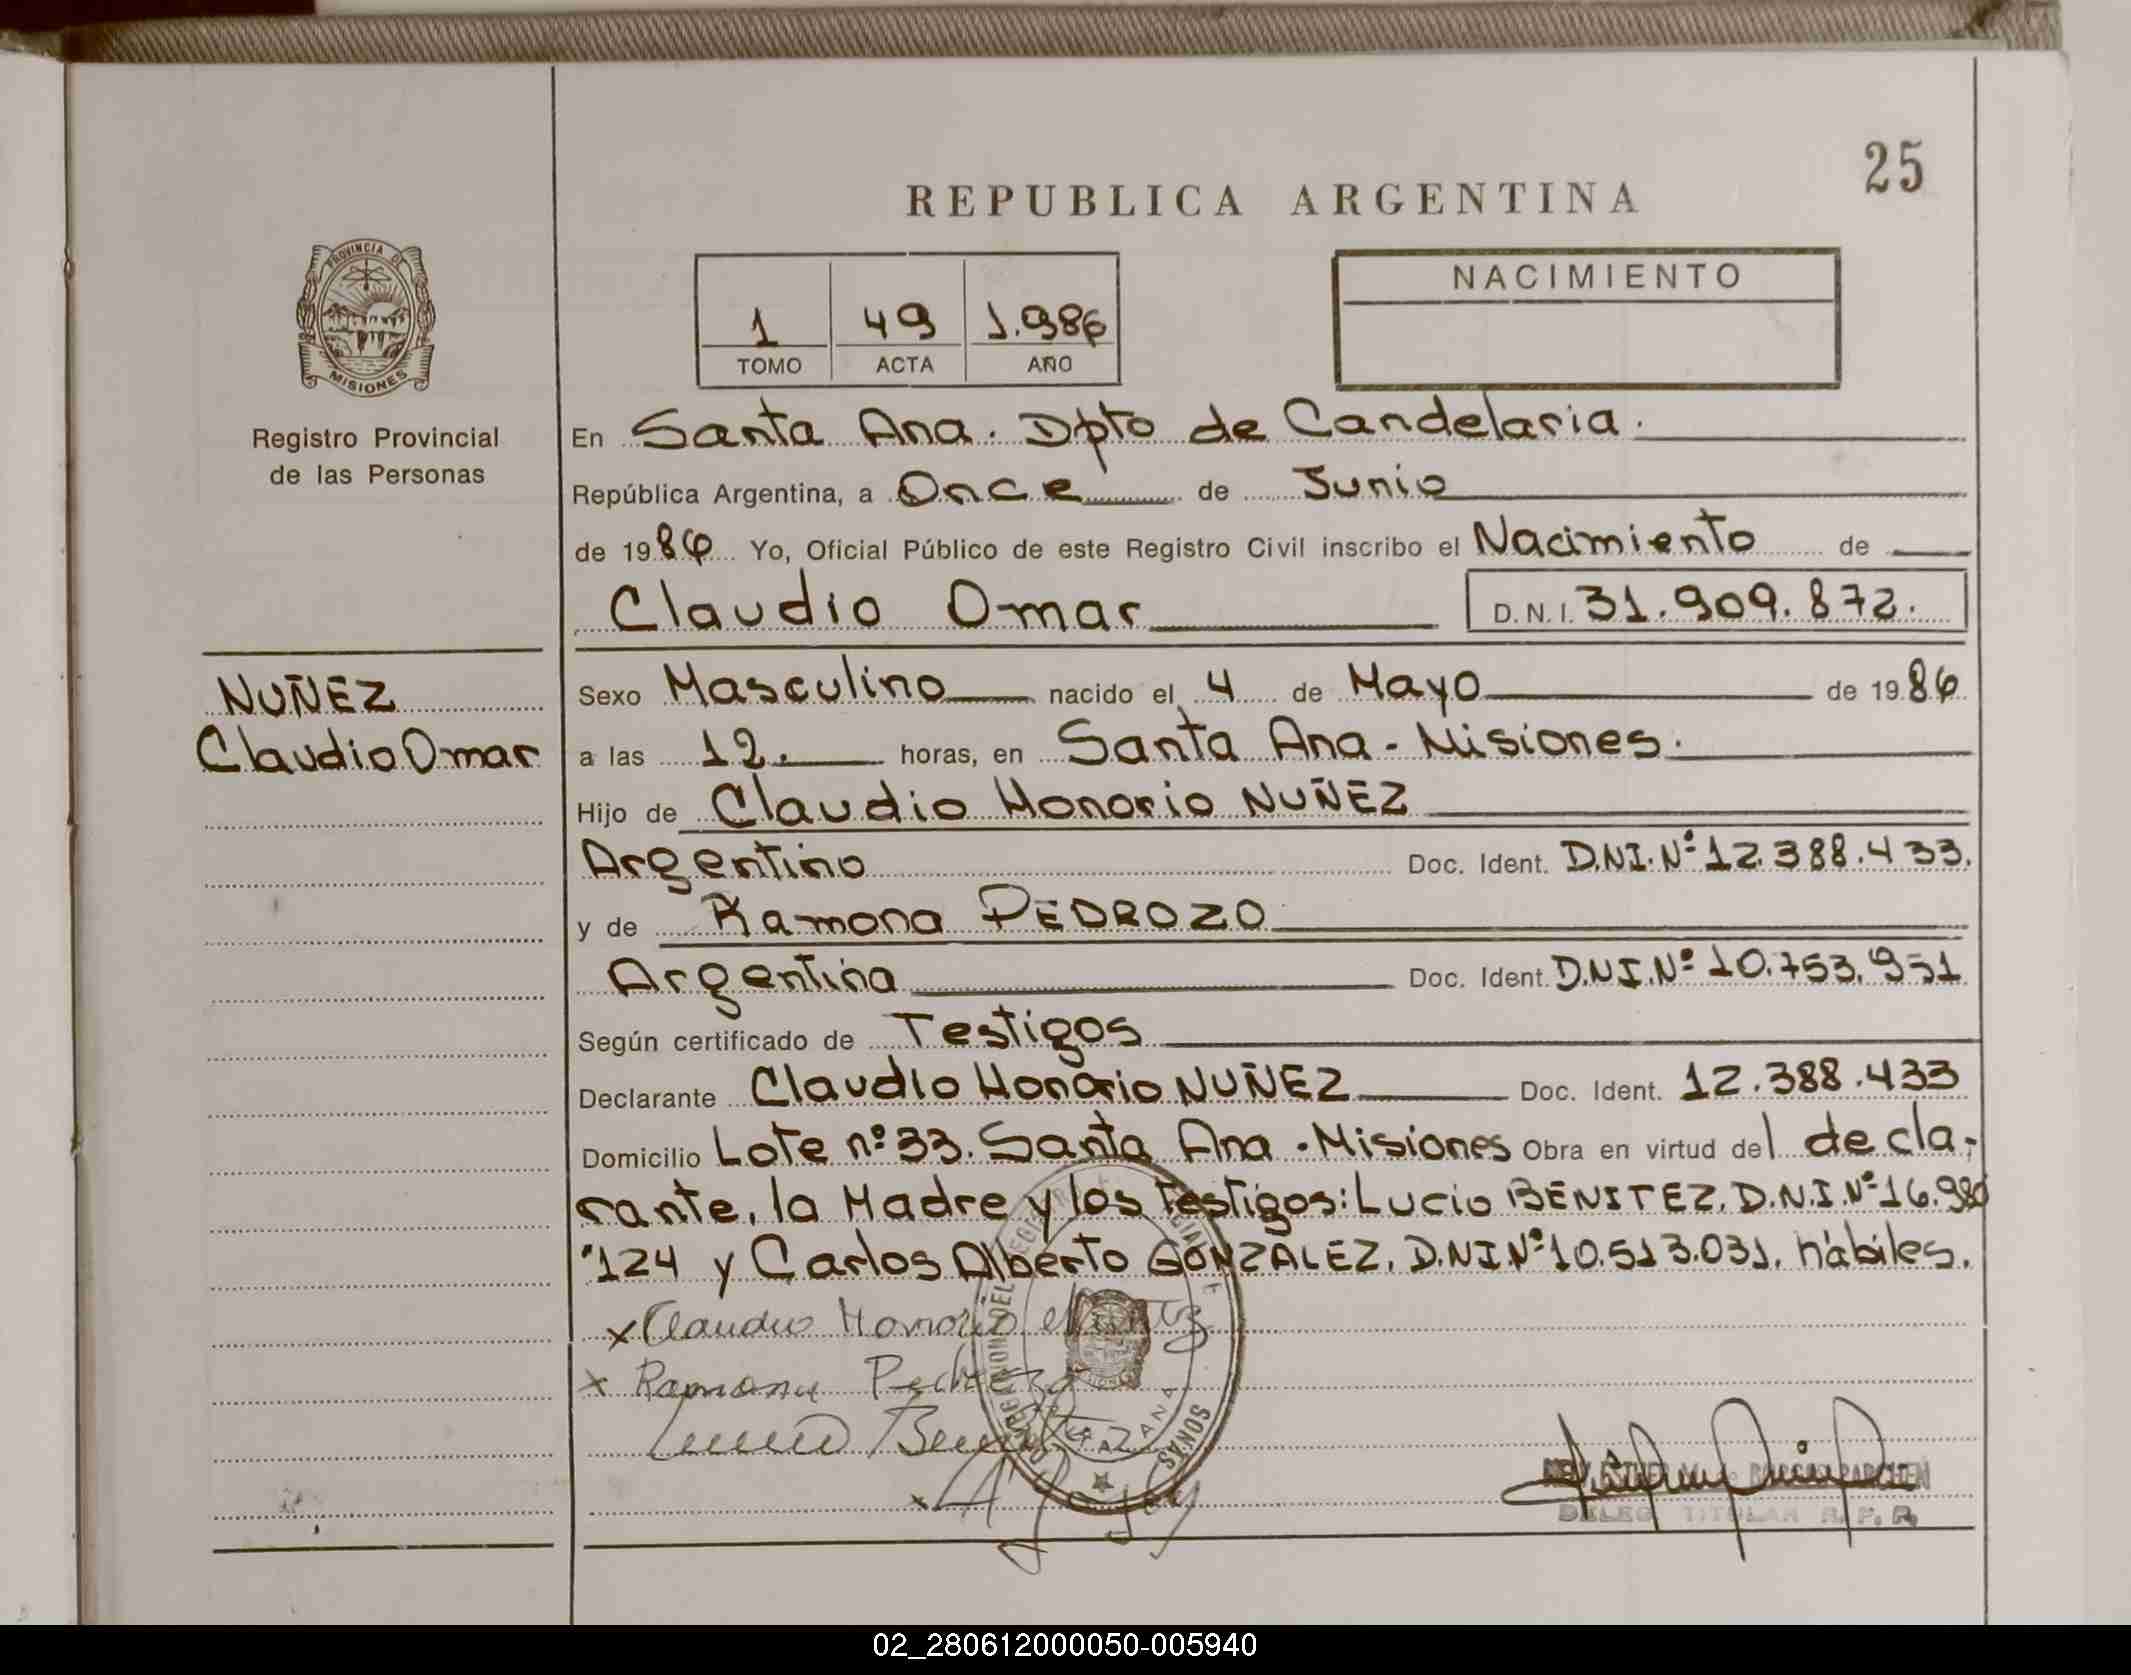 25
REPUBLICA ARGENTINA
PROVINCIA DE
MISIONES
Registro Provincial
de las Personas
1 49 1.986
TOMO ACTA AÑO
NACIMIENTO
En Santa Ana. Dpto de Candelaria.
República Argentina, a Once de Junio
de 1986 Yo, Oficial Público de este Registro Civil inscribo el Nacimiento de
Claudio Omar D.N.I. 31.909.872.
NUÑEZ
Claudio Omar
Sexo Masculino nacido el 4 de Mayo de 1986
a las 12. horas, en Santa Ana - Misiones.
Hijo de Claudio Honorio NUÑEZ
Argentino Doc. Ident. D.NI. Nº 12.388.433.
y de Ramona PEDROZO
Argentina Doc. Ident. D.NI.Nº 10.753.951
Según certificado de Testigos
Declarante Claudio Honorio NUÑEZ Doc. Ident. 12.388.433
Domicilio Lote nº 33. Santa Ana - Misiones Obra en virtud del decla-
rante, la Madre y los testigos: Lucio BENITEZ, D.N.I.Nº 16.980
124 y Carlos Alberto GONZALEZ, D.NI.Nº 10.513.031, hábiles.
x Claudio Honorio Nuñez
x Ramona Pedrozo
Lucio Benitez
SANTA ANA
DELEG. TITULAR R.P.P.
02_280612000050-005940